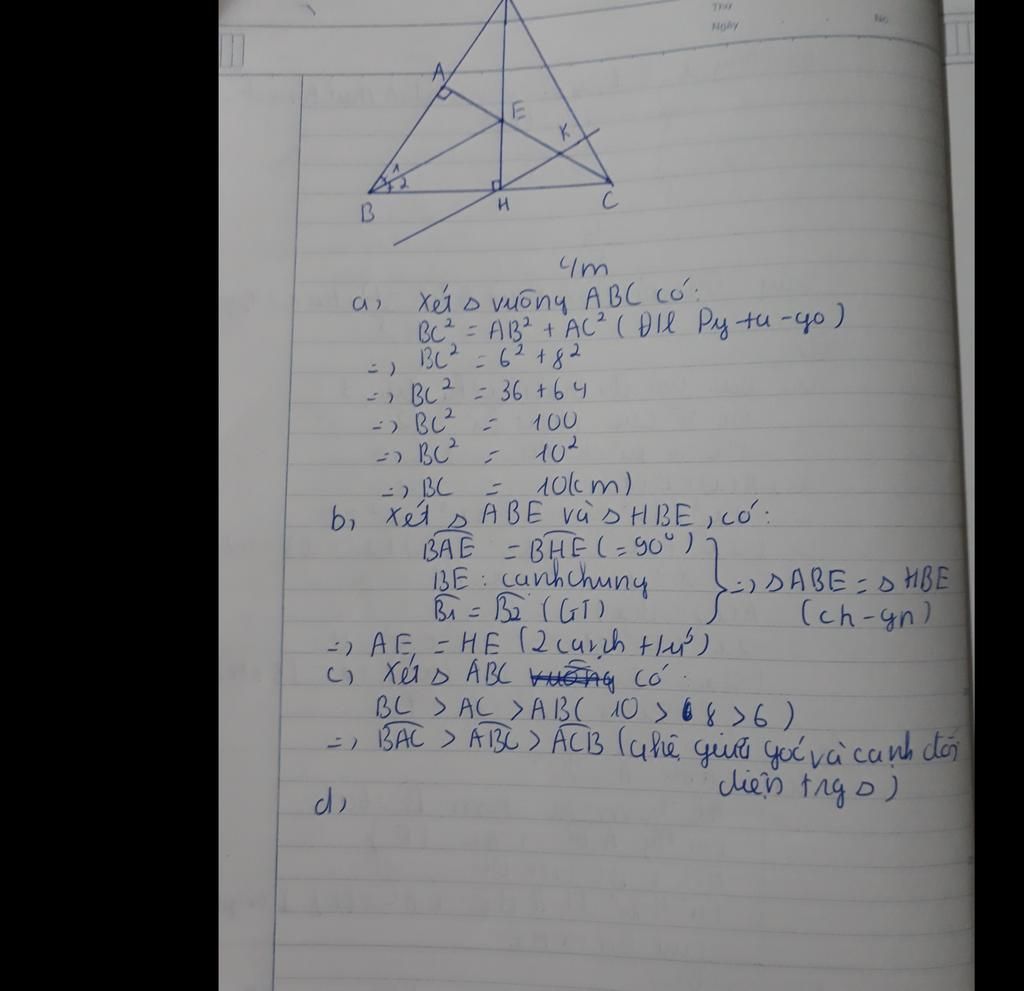 Thứ
Ngày
No
A
E
K
1
2
B
H
C
c/m
a, Xét △ vuông ABC có:
BC² = AB² + AC² (Đ/l Py-ta-go)
=> BC² = 6² + 8²
=> BC² = 36 + 64
=> BC² = 100
=> BC² = 10²
=> BC = 10(cm)
b, Xét △ ABE và △ HBE, có:
BAE = BHE (= 90°)
BE: cạnh chung => △ ABE = △ HBE
B1 = B2 (GT) (ch-gn)
=> AE = HE (2 cạnh t/ứ)
c, Xét △ ABC vuông có:
BC > AC > AB( 10 > 8 > 6)
=> BAC > ABC > ACB (qhệ giữa góc và cạnh đối
diện trg △)
d,